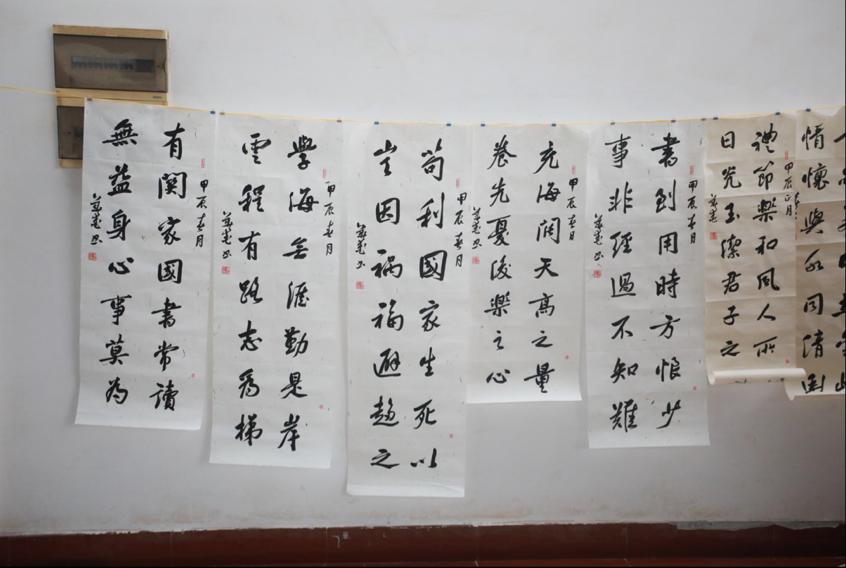 甲辰春月
有關家國書常讀
無益身心事莫為
甲辰春月
學海無涯勤是岸
雲程有路志為梯
甲辰春月
苟利國家生死以
豈因禍福避趨之
甲辰春月
充海阔天高之量
養先憂後樂之心
甲辰春月
書到用時方恨少
事非經過不知難
甲辰正月
礼節樂和風人所
日光玉潔君子之
情懷與水同清